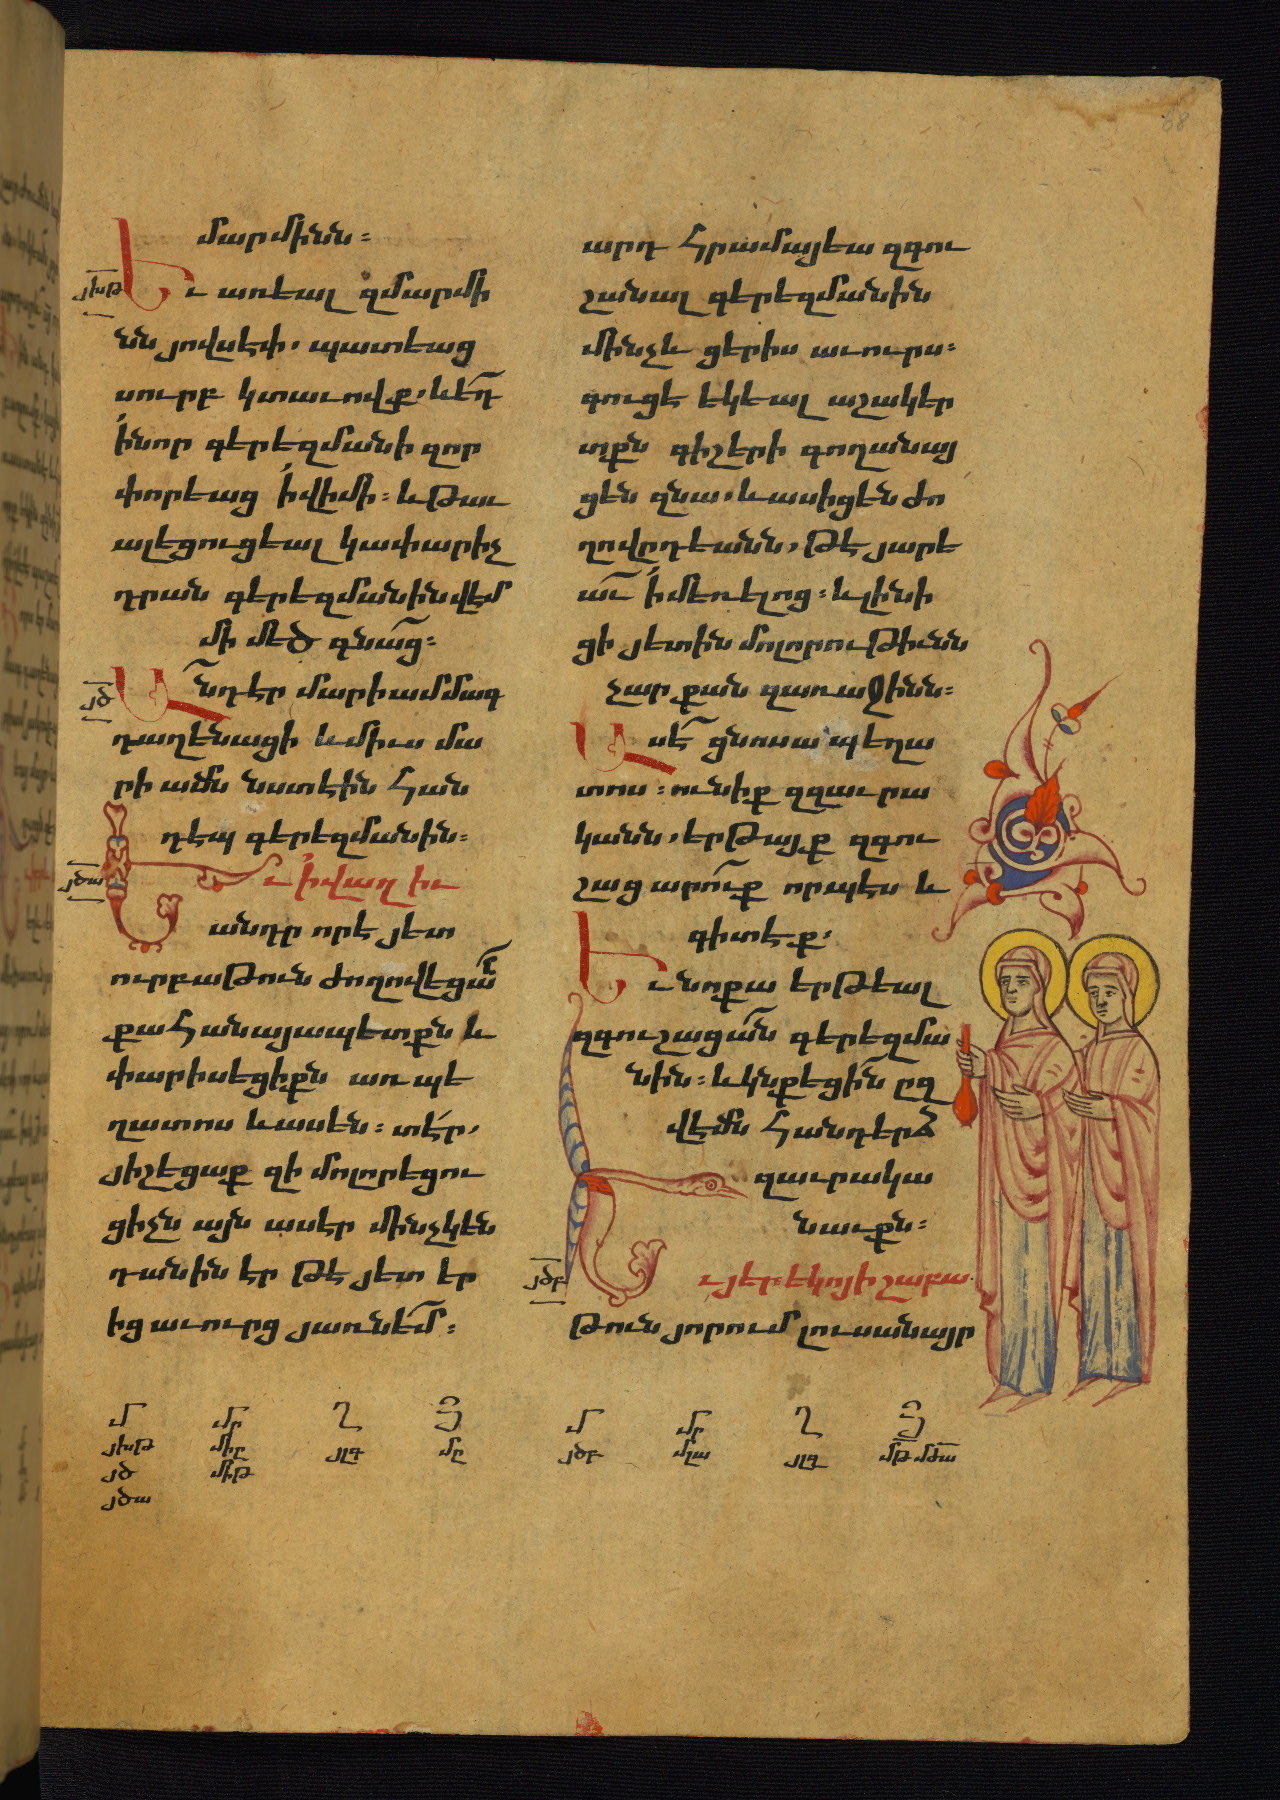 68
մարմինն:
յխթ
Եւ առեալ զմարմի
նն յովսէփ, պատեաց
սուրբ կտաւովք, և եդ
ի նոր գերեզմանի զոր
փորեաց ի վիմի: և թաւ
ալեցուցեալ կափարիչ
դրան գերեզմանին վէմ
մի մեծ գնաց:
յծ
Անդ էր մարիամ մագ
դաղէնացի և միւս մա
րիամն նստէին հան
դէպ գերեզմանին:
յծա
Եւ ի վաղիւ
անդր որ է յետ
ուրբաթուն ժողովեցան
քահանայապետքն և
փարիսեցիքն առ պի
ղատոս և ասեն: տէր,
յիշեցաք զի մոլորեցու
ցիչն այն ասէր մինչ կեն
դանին էր թէ յետ եր
ից աւուրց յառնեմ:
արդ հրամայեա զգու
շանալ գերեզմանին
մինչև ցերիս աւուրս:
գուցէ եկեալ աշակեր
տքն գիշերի գողանայ
ցեն զնա, և ասիցեն ժո
ղովրդեանն, թէ յարե
աւ ի մեռելոց: և լինի
ցի յետին մոլորութիւնն
չար քան զառաջինն:
Ասէ ցնոսա պեղա
տոս: ունիք զզաւրա
կանն, երթայք զգու
շացարուք որպէս և
գիտէք,
Եւ նոքա երթեալ
զգուշացան գերեզմա
նին: և կնքեցին ըզ
վէմն հանդերձ
զաւրակա
նաւքն:
յծբ
Եւ յերեկոյի շաբա
թուն յորում լուսանայր
Մ Մր Ղ Յ
յխթ միը յլգ մը
յծ միթ
յծա
Մ Մր Ղ Յ
յծբ մլա յլգ մթ մծա